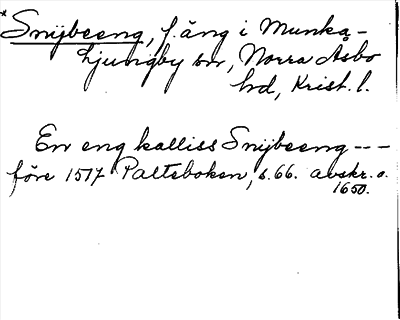 *Snijbeeng, f. äng i Munka-
Ljungby sn, Norra Åsbo
hd, Krist. l.
En eng kalliss Snijbeeng ---
före 1517 Palteboken, s. 66. avskr. o.
1650.